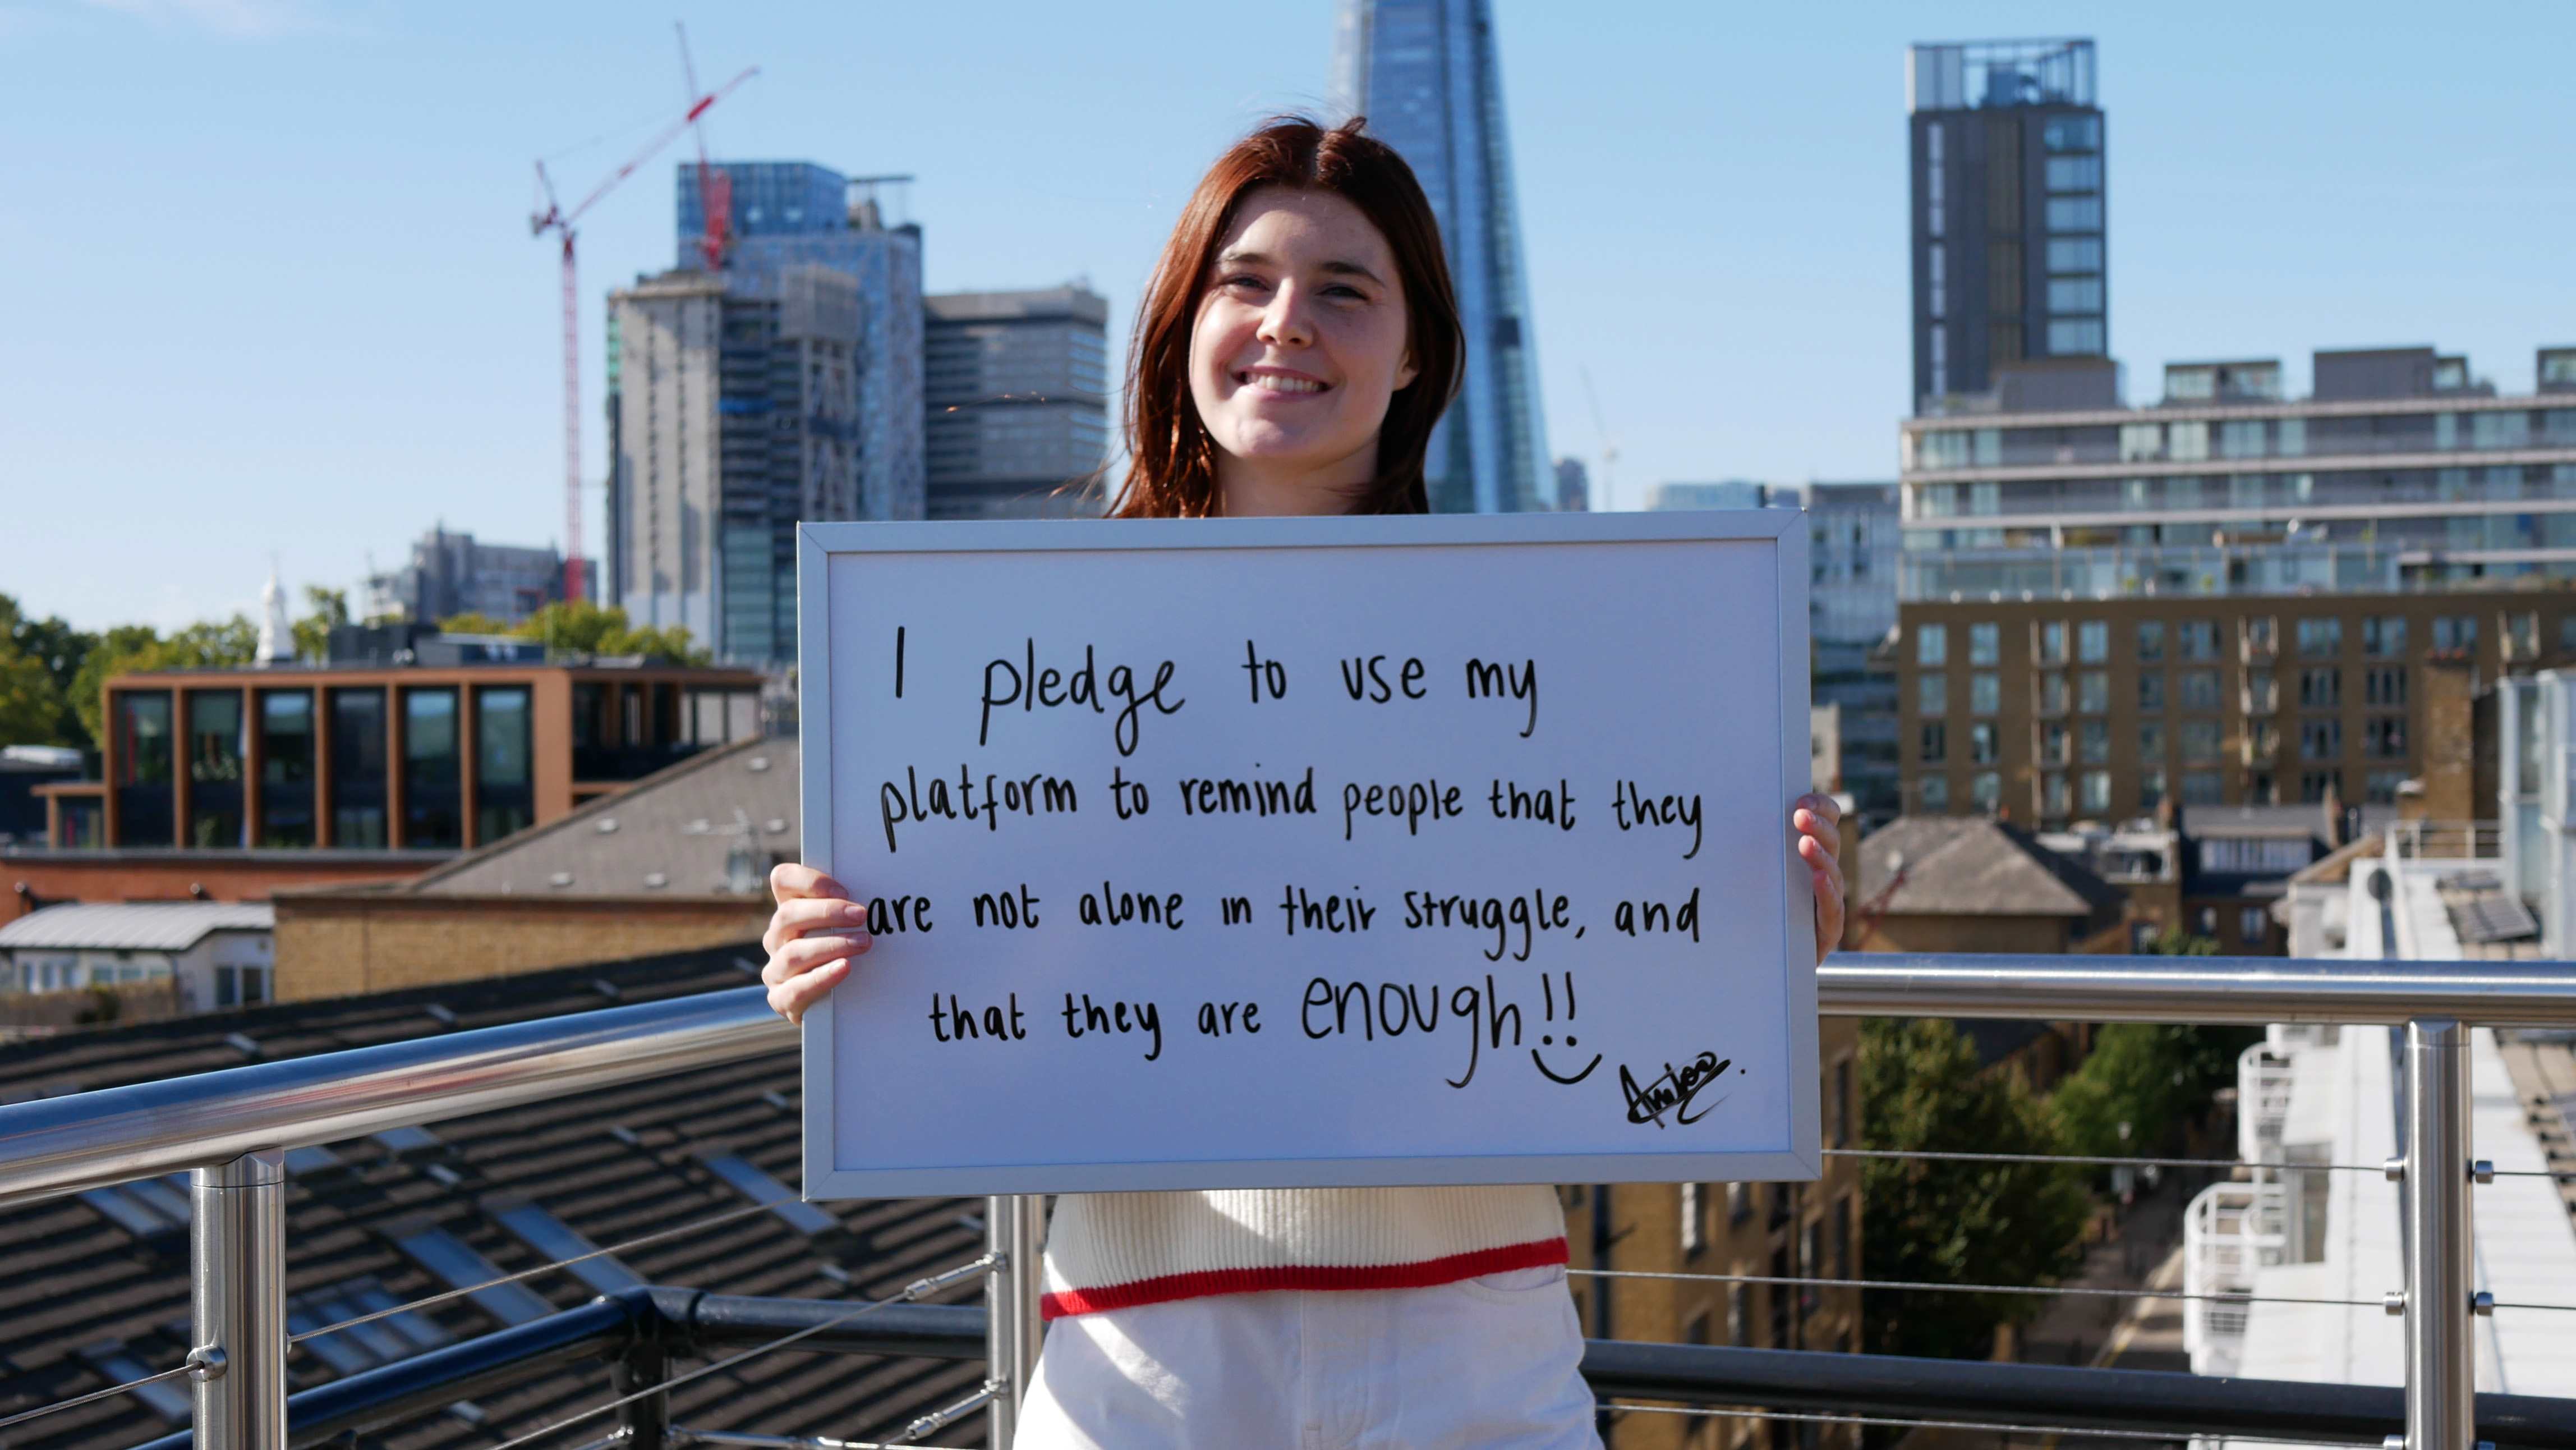 I pledge to use my
platform to remind people that they
are not alone in their struggle, and
that they are enough!!